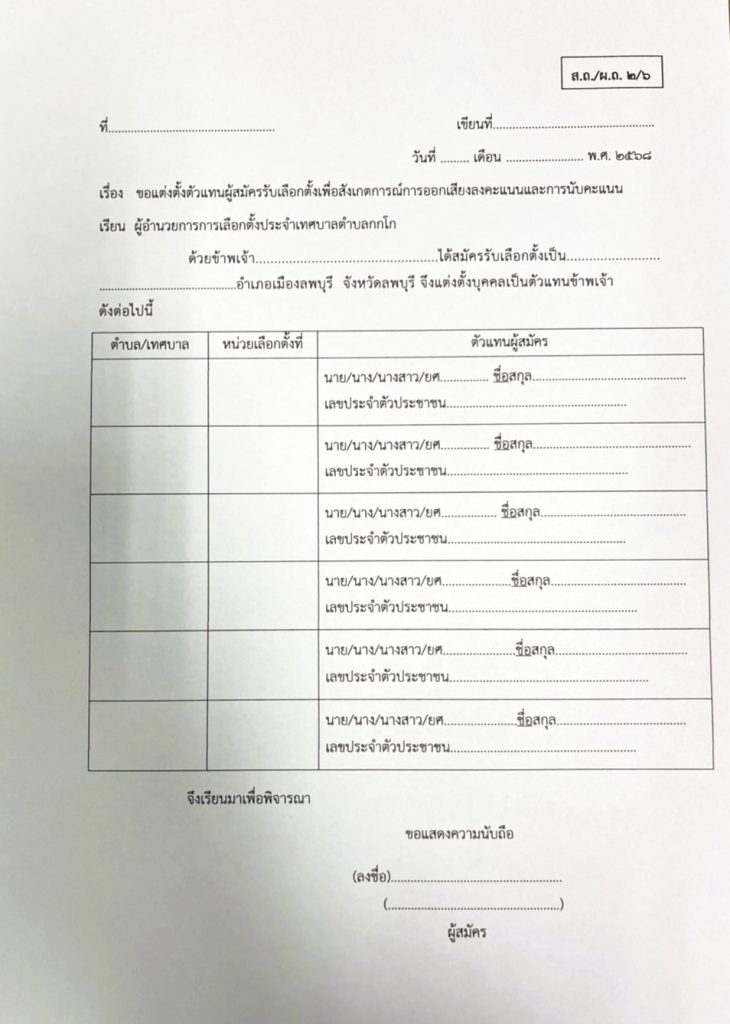 ส.ถ./ผ.ถ. ๒/๖
ที่.................................................... เขียนที่..................................................
วันที่ ......... เดือน ........................ พ.ศ. ๒๕๖๘
เรื่อง ขอแต่งตั้งตัวแทนผู้สมัครรับเลือกตั้งเพื่อสังเกตการณ์การออกเสียงลงคะแนนและการนับคะแนน
เรียน ผู้อำนวยการการเลือกตั้งประจำเทศบาลตำบลกกโก
ด้วยข้าพเจ้า.........................................................ได้สมัครรับเลือกตั้งเป็น.............................
...........................................อำเภอเมืองลพบุรี จังหวัดลพบุรี จึงแต่งตั้งบุคคลเป็นตัวแทนข้าพเจ้า
ดังต่อไปนี้
ตำบล/เทศบาล หน่วยเลือกตั้งที่ ตัวแทนผู้สมัคร
นาย/นาง/นางสาว/ยศ............... ชื่อสกุล................................................
เลขประจำตัวประชาชน........................................................
นาย/นาง/นางสาว/ยศ............... ชื่อสกุล................................................
เลขประจำตัวประชาชน........................................................
นาย/นาง/นางสาว/ยศ................. ชื่อสกุล.............................................
เลขประจำตัวประชาชน.......................................................
นาย/นาง/นางสาว/ยศ.....................ชื่อสกุล..........................................
เลขประจำตัวประชาชน..........................................................
นาย/นาง/นางสาว/ยศ......................ชื่อสกุล.........................................
เลขประจำตัวประชาชน.............................................................
นาย/นาง/นางสาว/ยศ.......................ชื่อสกุล........................................
เลขประจำตัวประชาชน.........................................................
จึงเรียนมาเพื่อพิจารณา
ขอแสดงความนับถือ
(ลงชื่อ).....................................................
(.....................................................)
ผู้สมัคร